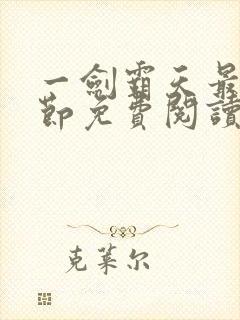 一劍霸天最
節免費閱讀
克萊尔